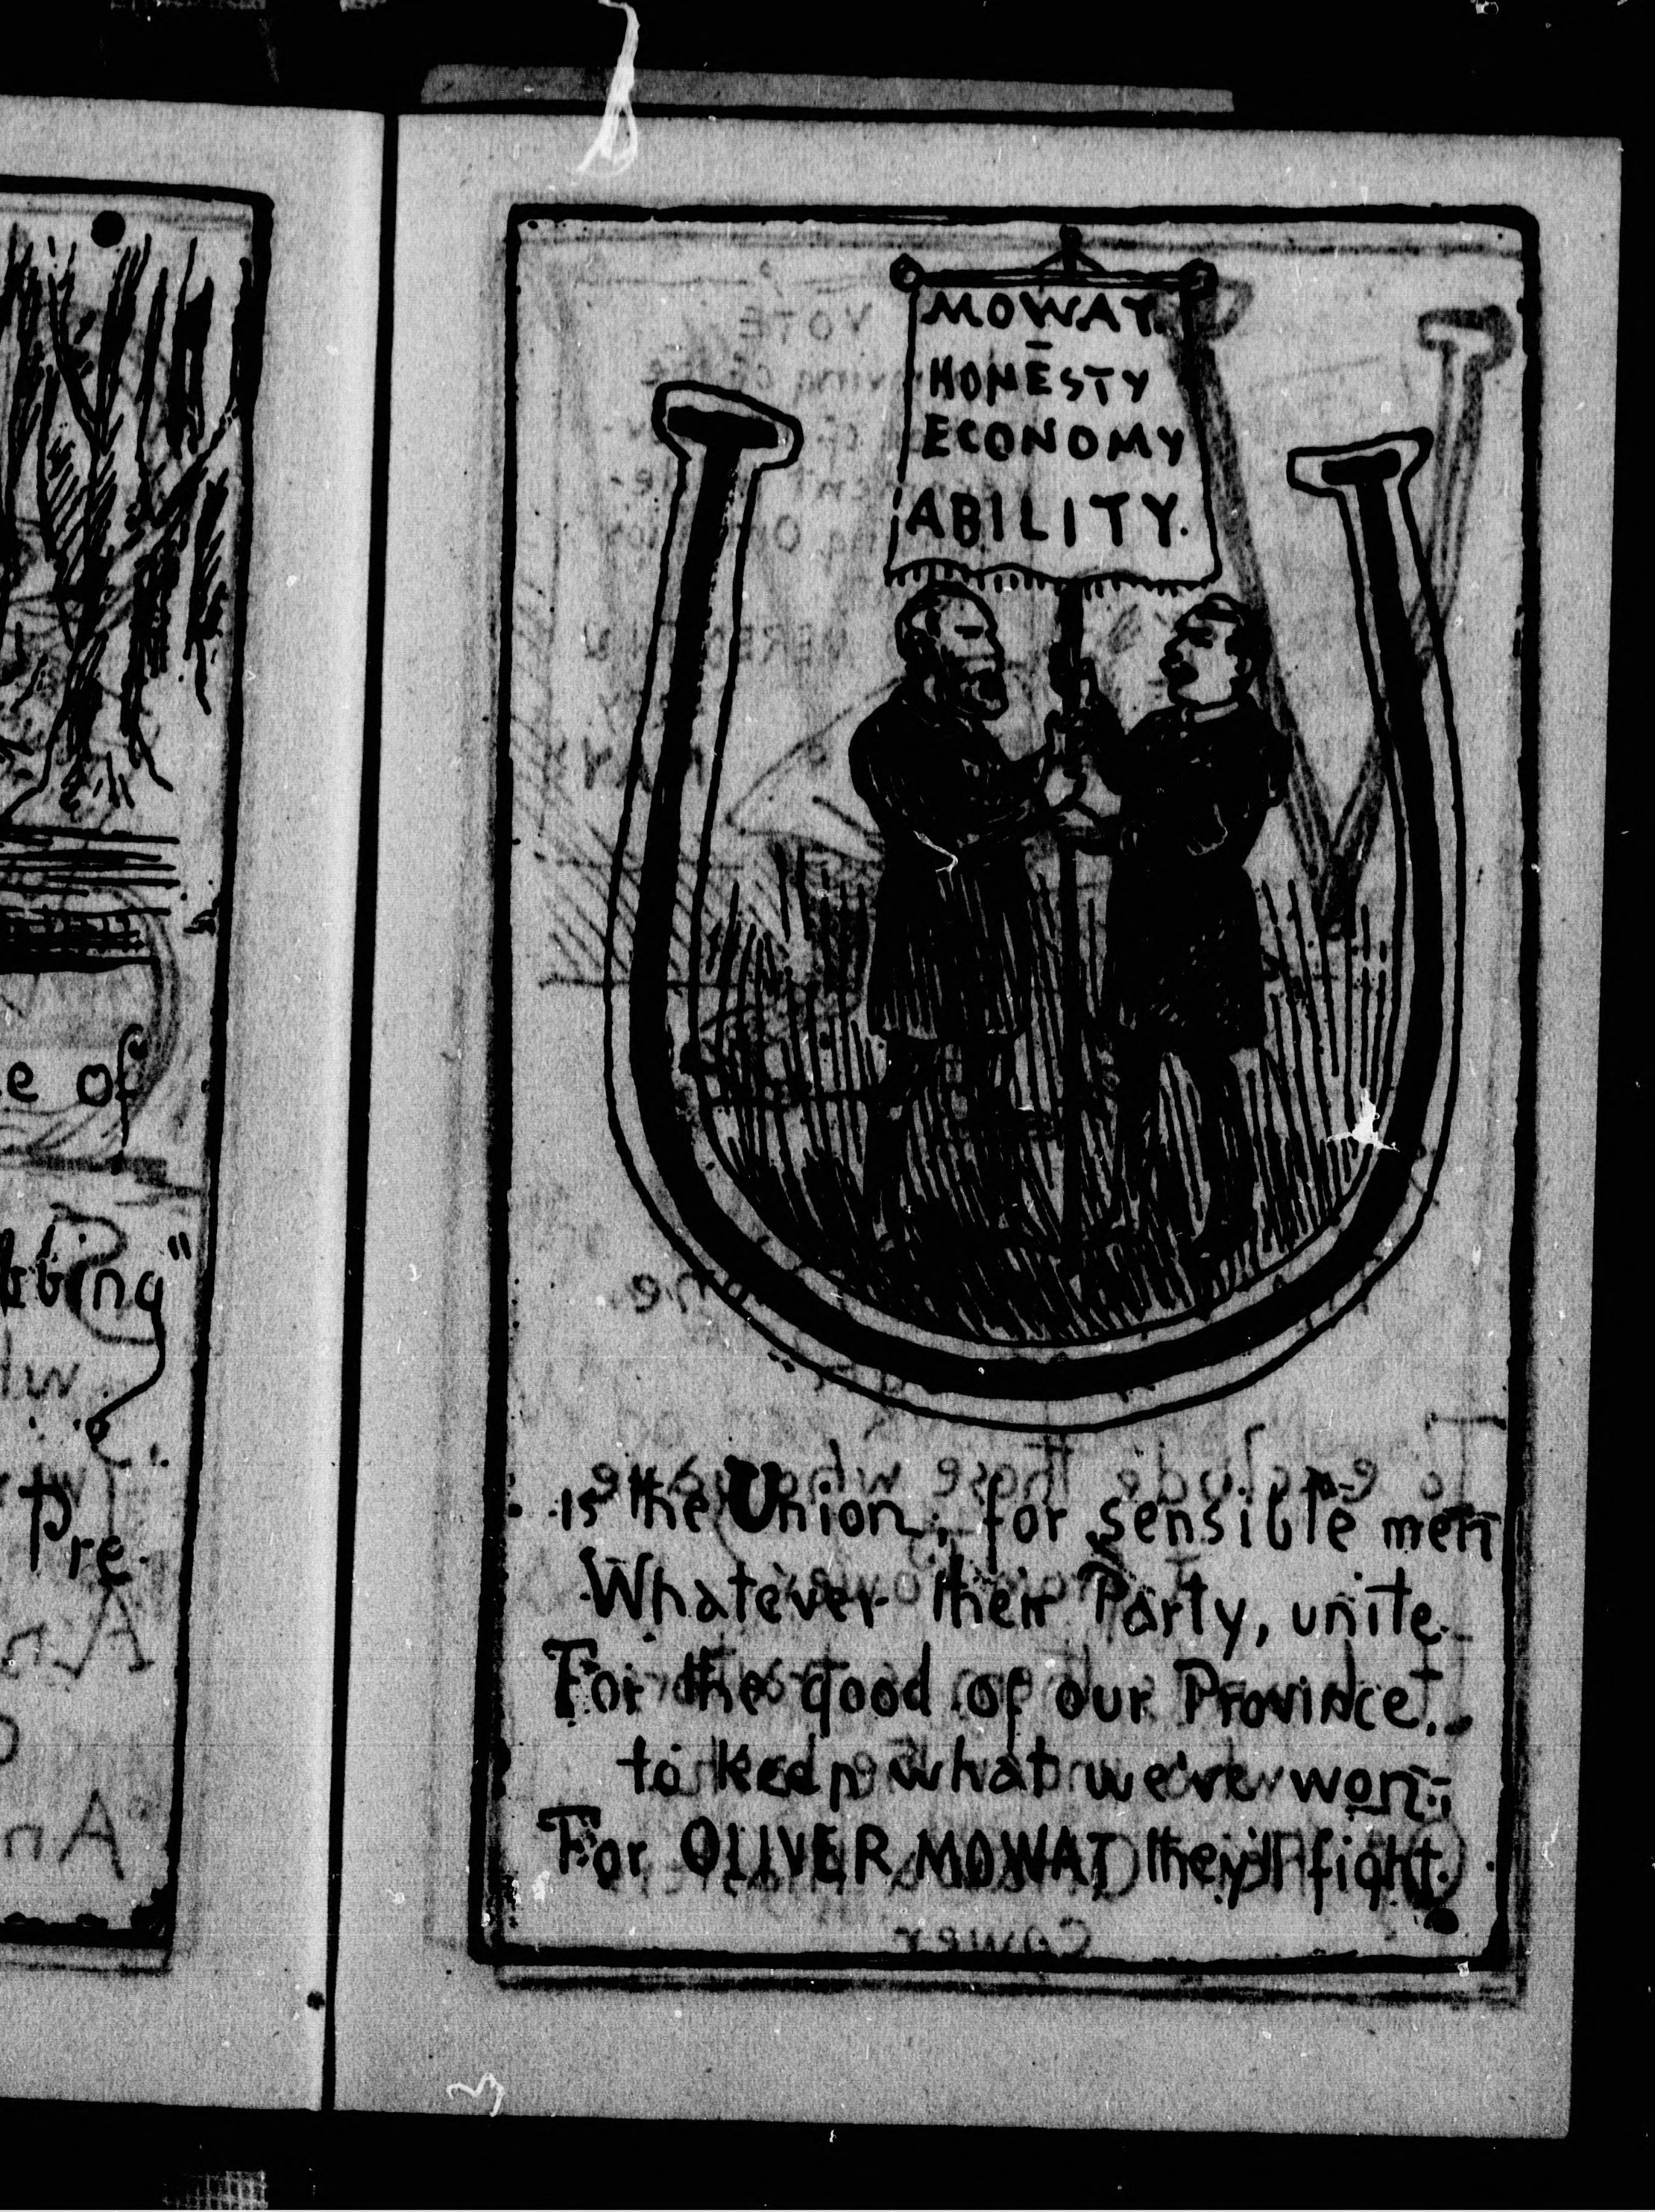 e of
bbing"
Pre-
MOWAT.
HONESTY
ECONOMY
ABILITY.
U
is the Union, for sensible men
Whatever their Party, unite
For the good of our Province,
to keep what we've won;
For OLIVER MOWAT they'll fight.